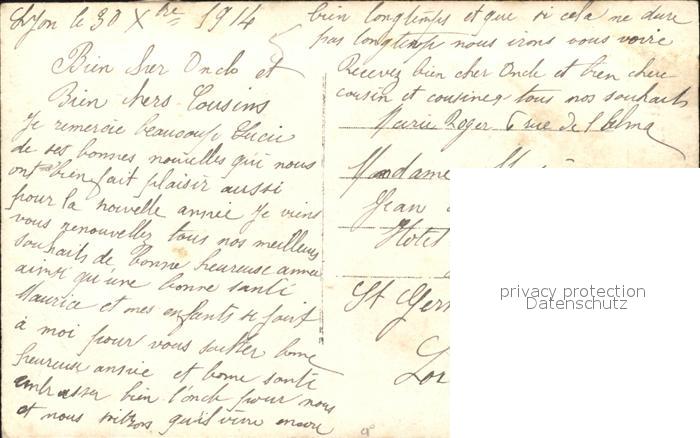 Lyon le 30 Xbre 1914
Bien cher Oncle et
Bien chers Cousins
Je remercie beaucoup Lucie
de ses bonnes nouvelles qui nous
ont bien fait plaisir aussi
pour la nouvelle année je viens
vous renouveller tous nos meilleurs
souhaits de bonne heureuse année
ainsi qu'une bonne santé
Maurice et mes enfants se joint
à moi pour vous souhter bonne
heureuse année et bonne santé
embrasser bien l'oncle pour nous
et nous qu'il vive encore
bien longtemps et que si cela ne dure
pas longtemp nous irons vous voire
Recevez bien cher Oncle et bien chere
cousin et cousines tous nos souhaits
Marie Roger 6 rue de l'
Madame
Jean
Hotel
St Ger
Lor
privacy protection
Datenschutz
9°